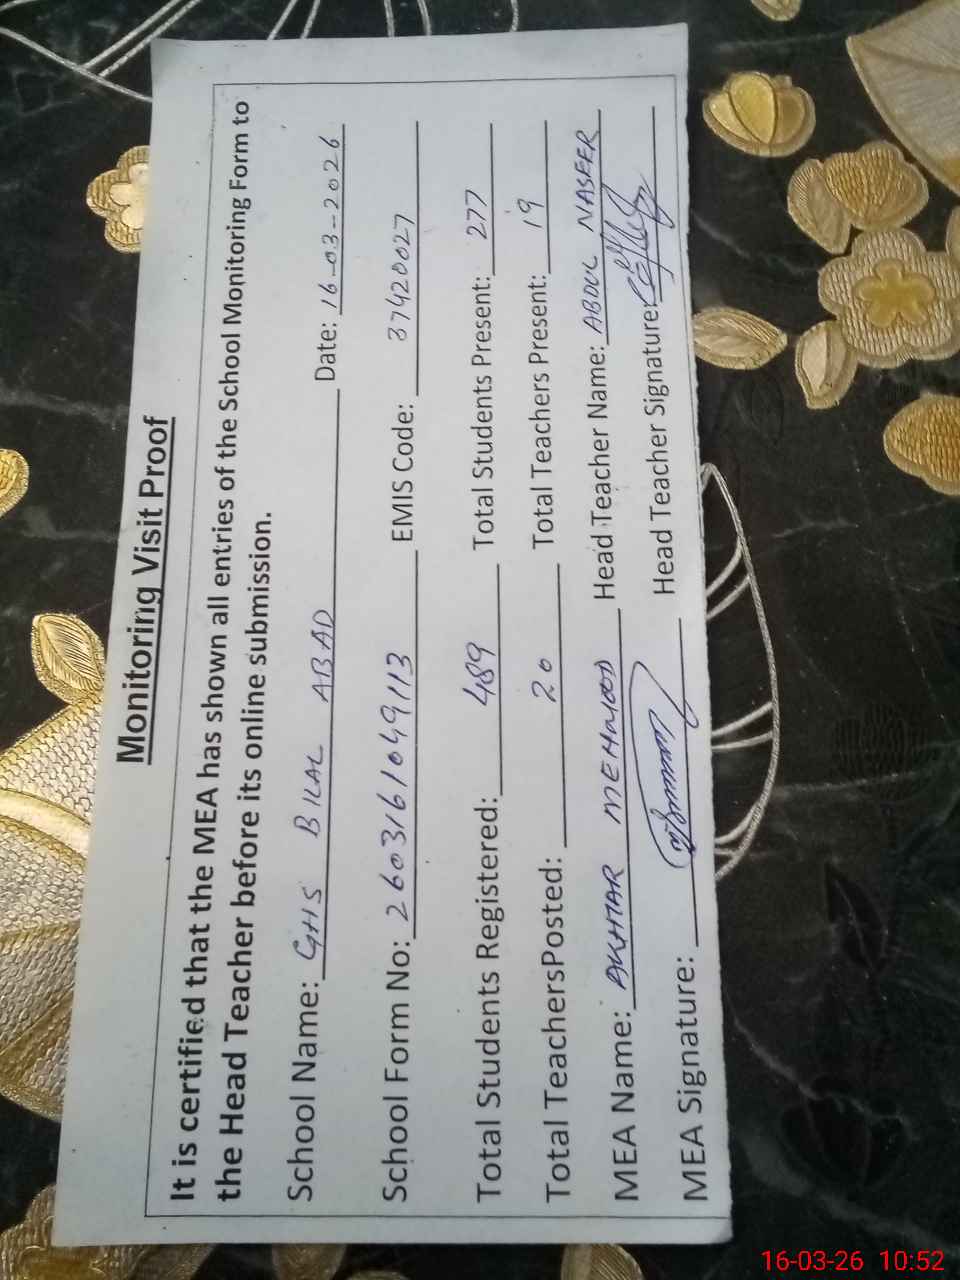 Monitoring Visit Proof
It is certified that the MEA has shown all entries of the School Monitoring Form to
the Head Teacher before its online submission.
School Name: GHS BILAL ABAD Date: 16-03-2026
School Form No: 2603161049113 EMIS Code: 37420027
Total Students Registered: 489 Total Students Present: 277
Total TeachersPosted: 20 Total Teachers Present: 19
MEA Name: AKHTAR MEHMOOD Head Teacher Name: ABDUL NASEER
MEA Signature: Head Teacher Signature:
16-03-26 10:52